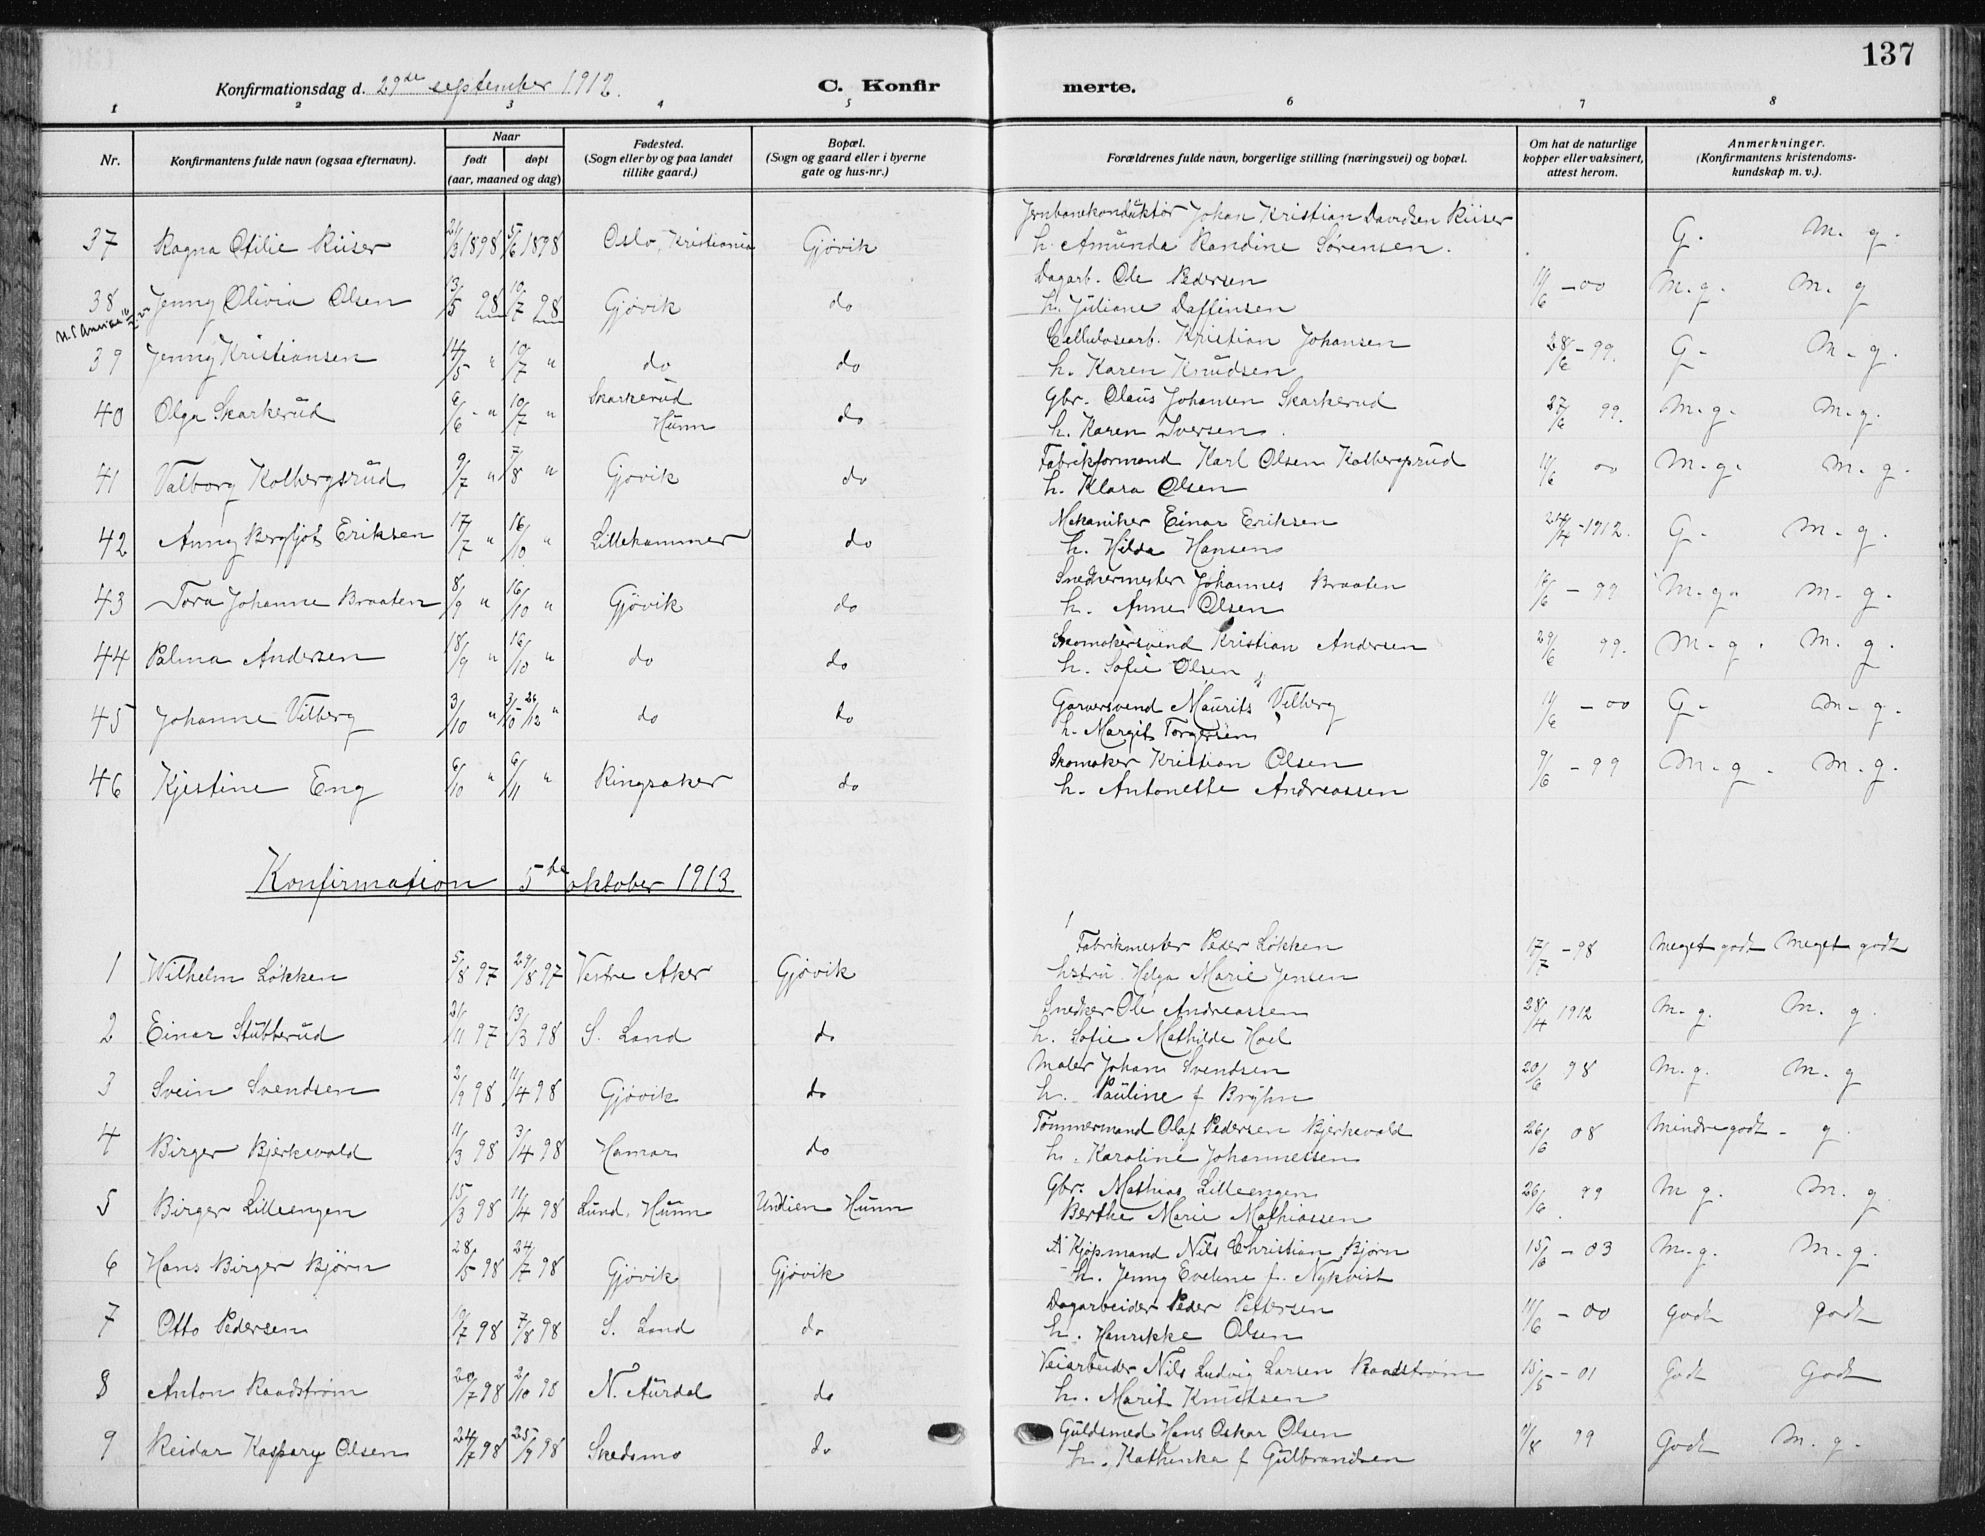 137
Konfirmationsdag d. 29de september 1912. C. Konfir merte.
1 2 3 4 5 6 7 8
Nr. Konfirmantens fulde navn (ogsaa efternavn). Naar født døpt (aar, maaned og dag) Fødested. (Sogn eller by og paa landet tillike gaard.) Bopæl. (Sogn og gaard eller i byerne gate og hus-nr.) Forældrenes fulde navn, borgerlige stilling (næringsvei) og bopæl. Om hat de naturlige kopper eller vaksinert, attest herom. Anmerkninger. (Konfirmantens kristendoms-kundskap m. v.).
Jernbanekonduktør Johan Kristian Davidsen Riiser
37 Ragna Otilie Riiser 2/3 1898 5/6 1898 Oslo, Kristiania Gjøvik h. Amunda Randine Sørensen. G. M. g.
Dagarb. Ole Pedersen
38 Jenny Olivia Olsen 13/5 98 10/7 98 Gjøvik do h. Juliane Daffinsen 11/6 - 00 M. g. M. g
Cellulosearb. Kristian Johansen
39 Jenny Kristiansen 14/5 " 10/7 " do do h. Karen Knudsen 28/6 - 99. G- M. g.
Gbr. Olaus Johansen Skarkerud
40 Olga Skarkerud 6/6 - " 10/7 " Skarkerud Hunn do h. Karen Iversen. 27/6 99. M. g. M. g.
Fabrikformand Karl Olsen Kolbergsrud
41 Valborg Kolbergsrud 9/7 " 7/8 " Gjøvik do h. Klara Olsen 11/6 00 M. g. M. g.
Mekaniker Einar Eriksen
42 Anny Bergljot Eriksen 17/7 " 16/10 " Lillehammer do h. Hilda Hansen 24/4 - 1912. G. M. g.
Snedkermester Johannes Braaten
43 Tora Johanne Braaten 8/9 " 16/10 " Gjøvik do h. Anne Olsen 16/6 - 99 M. g. M. g.
Skomakersvend Kristian Andersen
44 Palma Andersen 18/9 " 16/10 " do do h. Sofie Olsen 29/6 99. M. g. M. g.
Garversvend Maurits Vilberg
45 Johanne Vilberg 3/10 " 26/12 " do do h. Margit Torgersen 11/6 - 00 G- M. g.
Skomaker Kristian Olsen
46 Kjestine Eng 6/10 " 6/11 " Ringsaker do h. Antonette Andreassen 9/6 - 99 M. g. M. g.
Konfirmation 5de oktober 1913
Fabrikmester Peder Løkken
1 Wilhelm Løkken 5/8 97 29/8 97 Vestre Aker Gjøvik hstru Helga Marie Jensen 17/7 - 98 Meget godt Meget godt
Snedker Ole Andreassen
2 Einar Stubberud 21/11 97 13/3 98 S. Land do h. Sofie Mathilde Hoel 28/4 1912 M. g. M. g.
Maler Johan Svendsen
3 Svein Svendsen 2/2 98 11/4 98 Gjøvik do h. Pauline f Bryhn 20/6 98 M. g. M. g
Tømmermand Olaf Pedersen Bjerkevold
4 Birger Bjerkevold 11/3 98 3/4 98 Hamar do h. Karoline Johannessen 26/6 08 Mindre godt - g.
Gbr. Mathias Lilleengen
5 Birger Lilleengen 15/3 98 11/4 98 Lund, Hunn Undien Hunn Berthe Marie Mathiassen 26/6 99 M g. M. g
Kjøpmand Nils Christian Bjørn
6 Hans Birger Bjørn 28/5 98 24/7 98 Gjøvik Gjøvik h. Jenny Eveline f. Nykvist 15/6 - 03 M. g. M. g.
Dagarbeider Peder Pettersen
7 Otto Pedersen 10/7 98 7/8 98 S. Land do h. Henrikke Olsen 11/6 - 00 godt godt
Veiarbeider Nils Ludvig Larsen Raadstrøm
8 Anton Raadstrøm 20/7 98 2/10 98 N. Aurdal do h. Marit Knutsen 15/5 - 01 Godt Godt
Guldsmed Hans Oskar Olsen
9 Reidar Kaspary Olsen 24/7 98 25/9 98 Skedsmo do h. Kathinka f Gulbrandsen 11/8 99 Godt M. g.